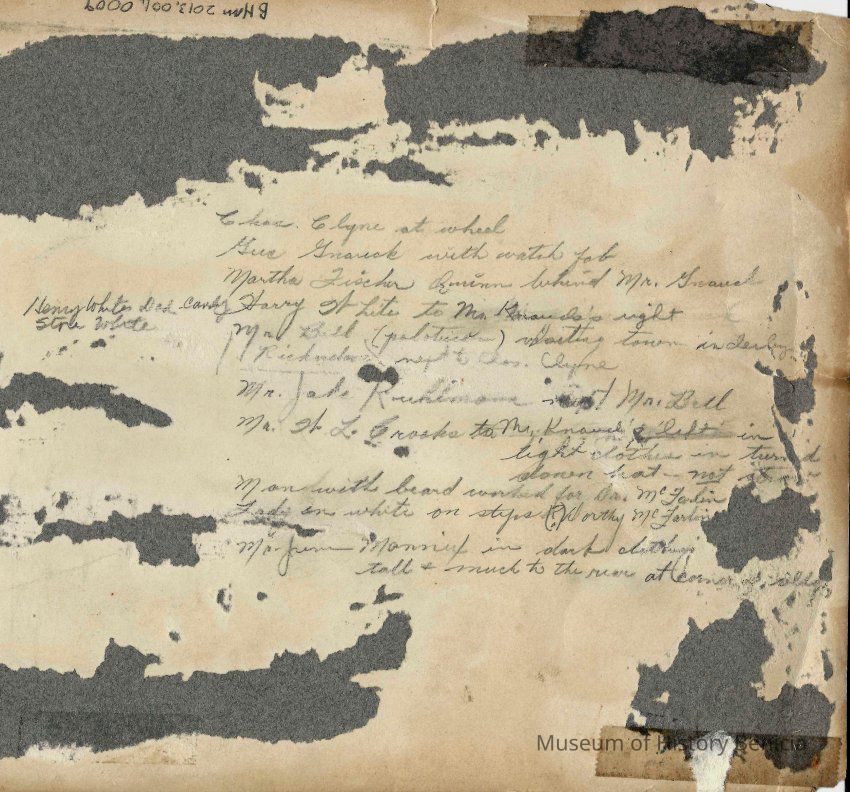 BHM 2013.001.0009
Chas. Clyne at wheel
Gus Gnauck with watch fob
Martha Fischer Quinn behind Mr. Gnauck
Henry White Ded Candy
Store White
Harry White to Mr. Knauck's right
Mr. Bell (politician) visiting town in derby
next to Chas. Clyne
Mr. Jake Kuhlmann next Mr. Bell
Mr. W L Crooks to Mr. Knauck's left in
light clothes in turned
down hat - not
Man with beard worked for Dr. McFarlin
Lady in white on steps (?) Worthy McFarlin
Mr. in dark clothing
tall & much to the rear at corner
Museum of History Benicia